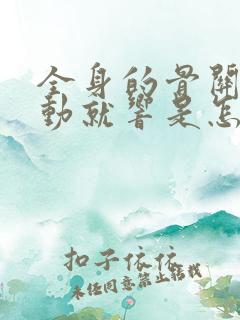 全身的骨關
動就響是怎
扣子依依
未经同意禁止转载